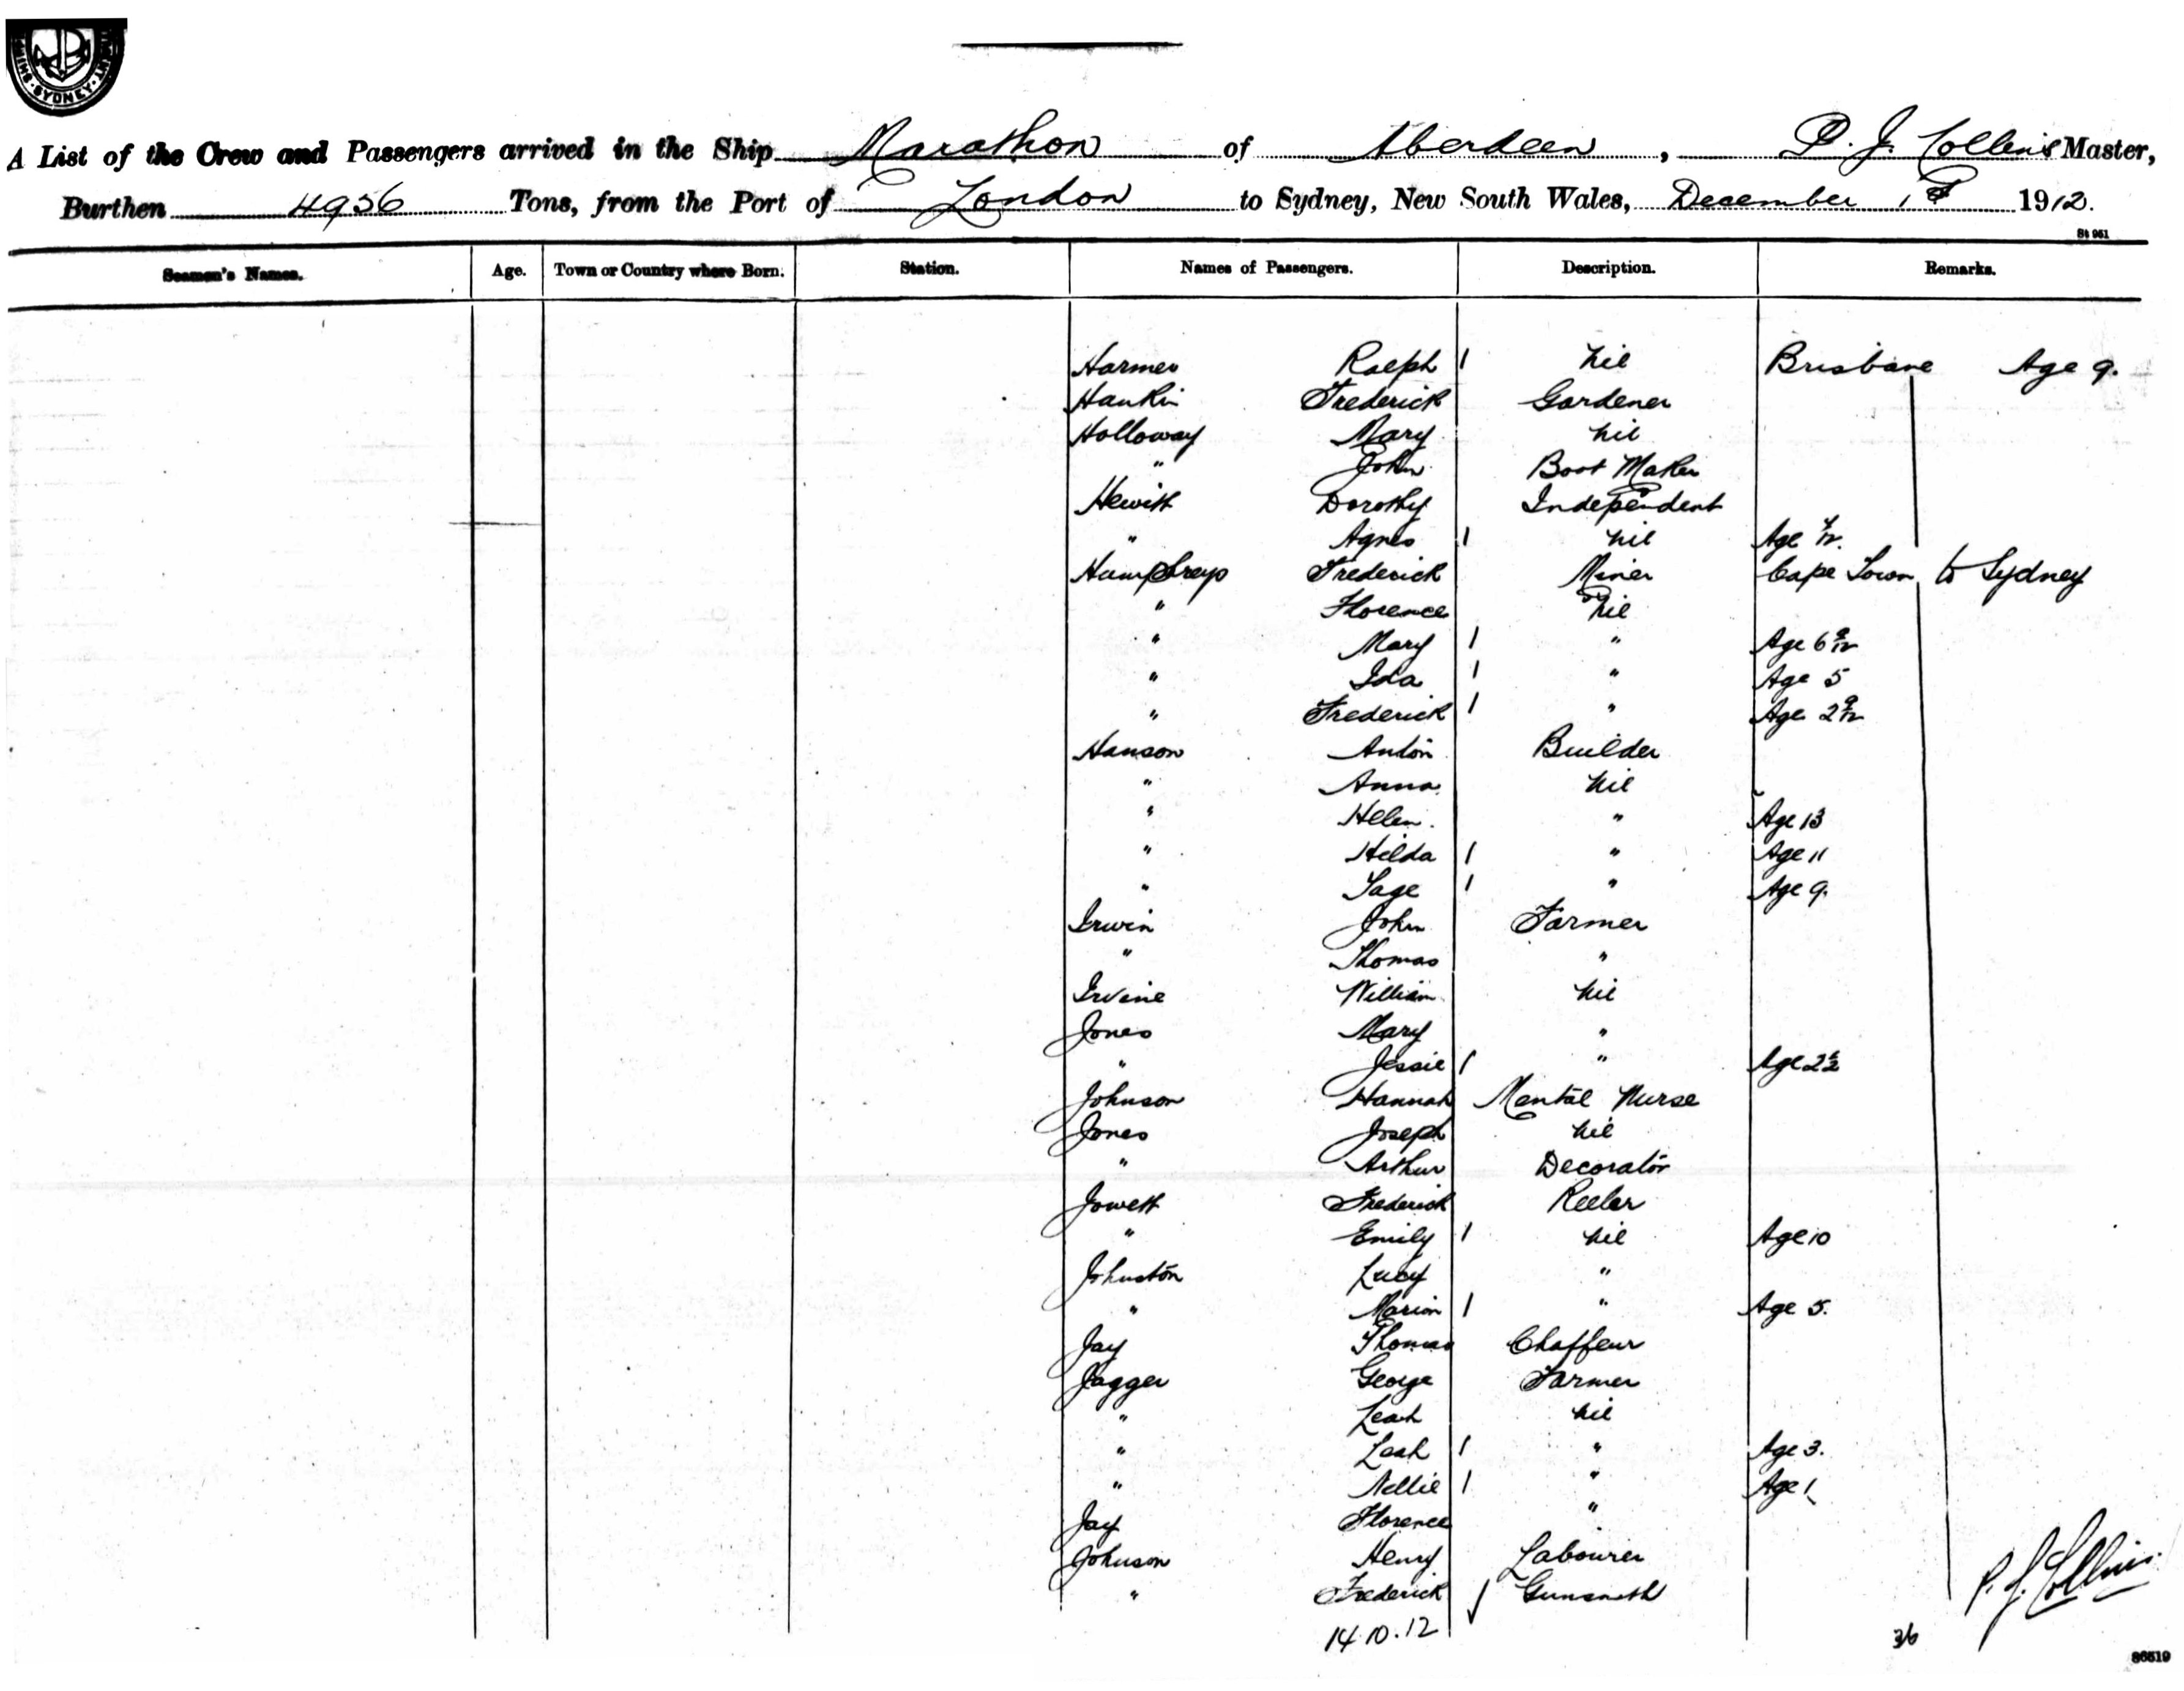 SHIPPING · SYDNEY
A List of the Crew and Passengers arrived in the Ship Marathon of Aberdeen, P. J. Collins Master,
Burthen 4956 Tons, from the Port of London to Sydney, New South Wales, December 1st 1912.
St 961
Seamen's Names. Age. Town or Country where Born. Station. Names of Passengers. Description. Remarks.
Harmer Ralph 1 nil Brisbane Age 9.
Hankin Frederick Gardener
Holloway Mary nil
" John Boot Maker
Hewitt Dorothy Independent
" Agnes 1 nil Age
Humphreys Frederick Miner Cape Town to Sydney
" Florence nil
" Mary 1 " Age 6 9/12
" Ida 1 " Age 5
" Frederick 1 " Age 2 9/12
Hanson Anton Builder
" Anna nil
" Helen " Age 13
" Hilda 1 " Age 11
" Tage 1 " Age 9.
Irwin John Farmer
" Thomas "
Irvine William nil
Jones Mary "
" Jessie 1 " Age 2½
Johnson Hannah Mental Nurse
Jones Joseph nil
" Arthur Decorator
Jowett Frederick Reeler
" Emily 1 nil Age 10
Johnston Lucy "
" Marion 1 " Age 5.
Jay Thomas Chaffeur
Jagger George Farmer
" Leah nil
" Leah 1 " Age 3.
" Nellie 1 " Age 1
Jay Florence "
Johnson Henry Labourer
" Frederick ✓ Gunsmith
P. J. Collins.
14.10.12 36
86519